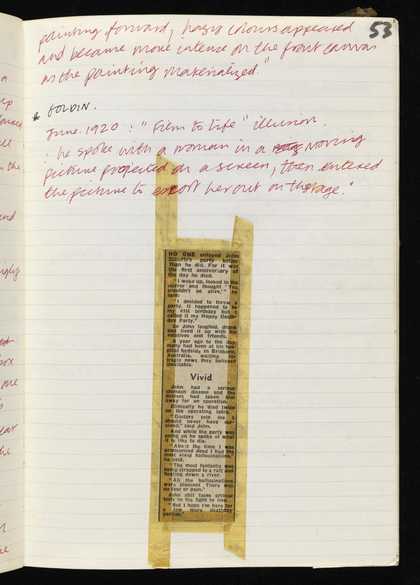 53
painting forward, hazy colours appeared
and became more intense on the front canvas
as the painting materialized."
* GOLDIN.
June. 1920 : "Film to Life" illusion.
: he spoke with a woman in a moving
picture projected on a screen, then entered
the picture to escort her out on the stage."
NO ONE enjoyed John
party better
than he did. For it was
the first anniversary of
the day he died.
"I woke up, looked in the
mirror and thought 'You
shouldn't be alive,'" he
said.
"I decided to throw a
party. It happened to be
my 41st birthday but I
called it my Happy Death-
day Party."
So John laughed, drank
and lived it up with his
relatives and friends.
A year ago to the day
many had been at his hos-
pital bedside in Brisbane,
Australia, waiting for
tragic news they believed
inevitable.
Vivid
John had a serious
stomach disease and the
doctors had taken him
away for an operation.
Clinically he died twice
on the operating table.
"Doctors told me I
should never have sur-
vived," said John.
And while the party was
going on he spoke of what
it is like to die.
"About the time I was
pronounced dead I had the
most vivid hallucinations,"
he said.
"The most fantastic was
being strapped to a raft and
floating down a river.
"All the hallucinations
were pleasant. There was
no fear or pain."
John still faces
in his fight to live.
"But I hope I'm here for
a few more deathday
parties."